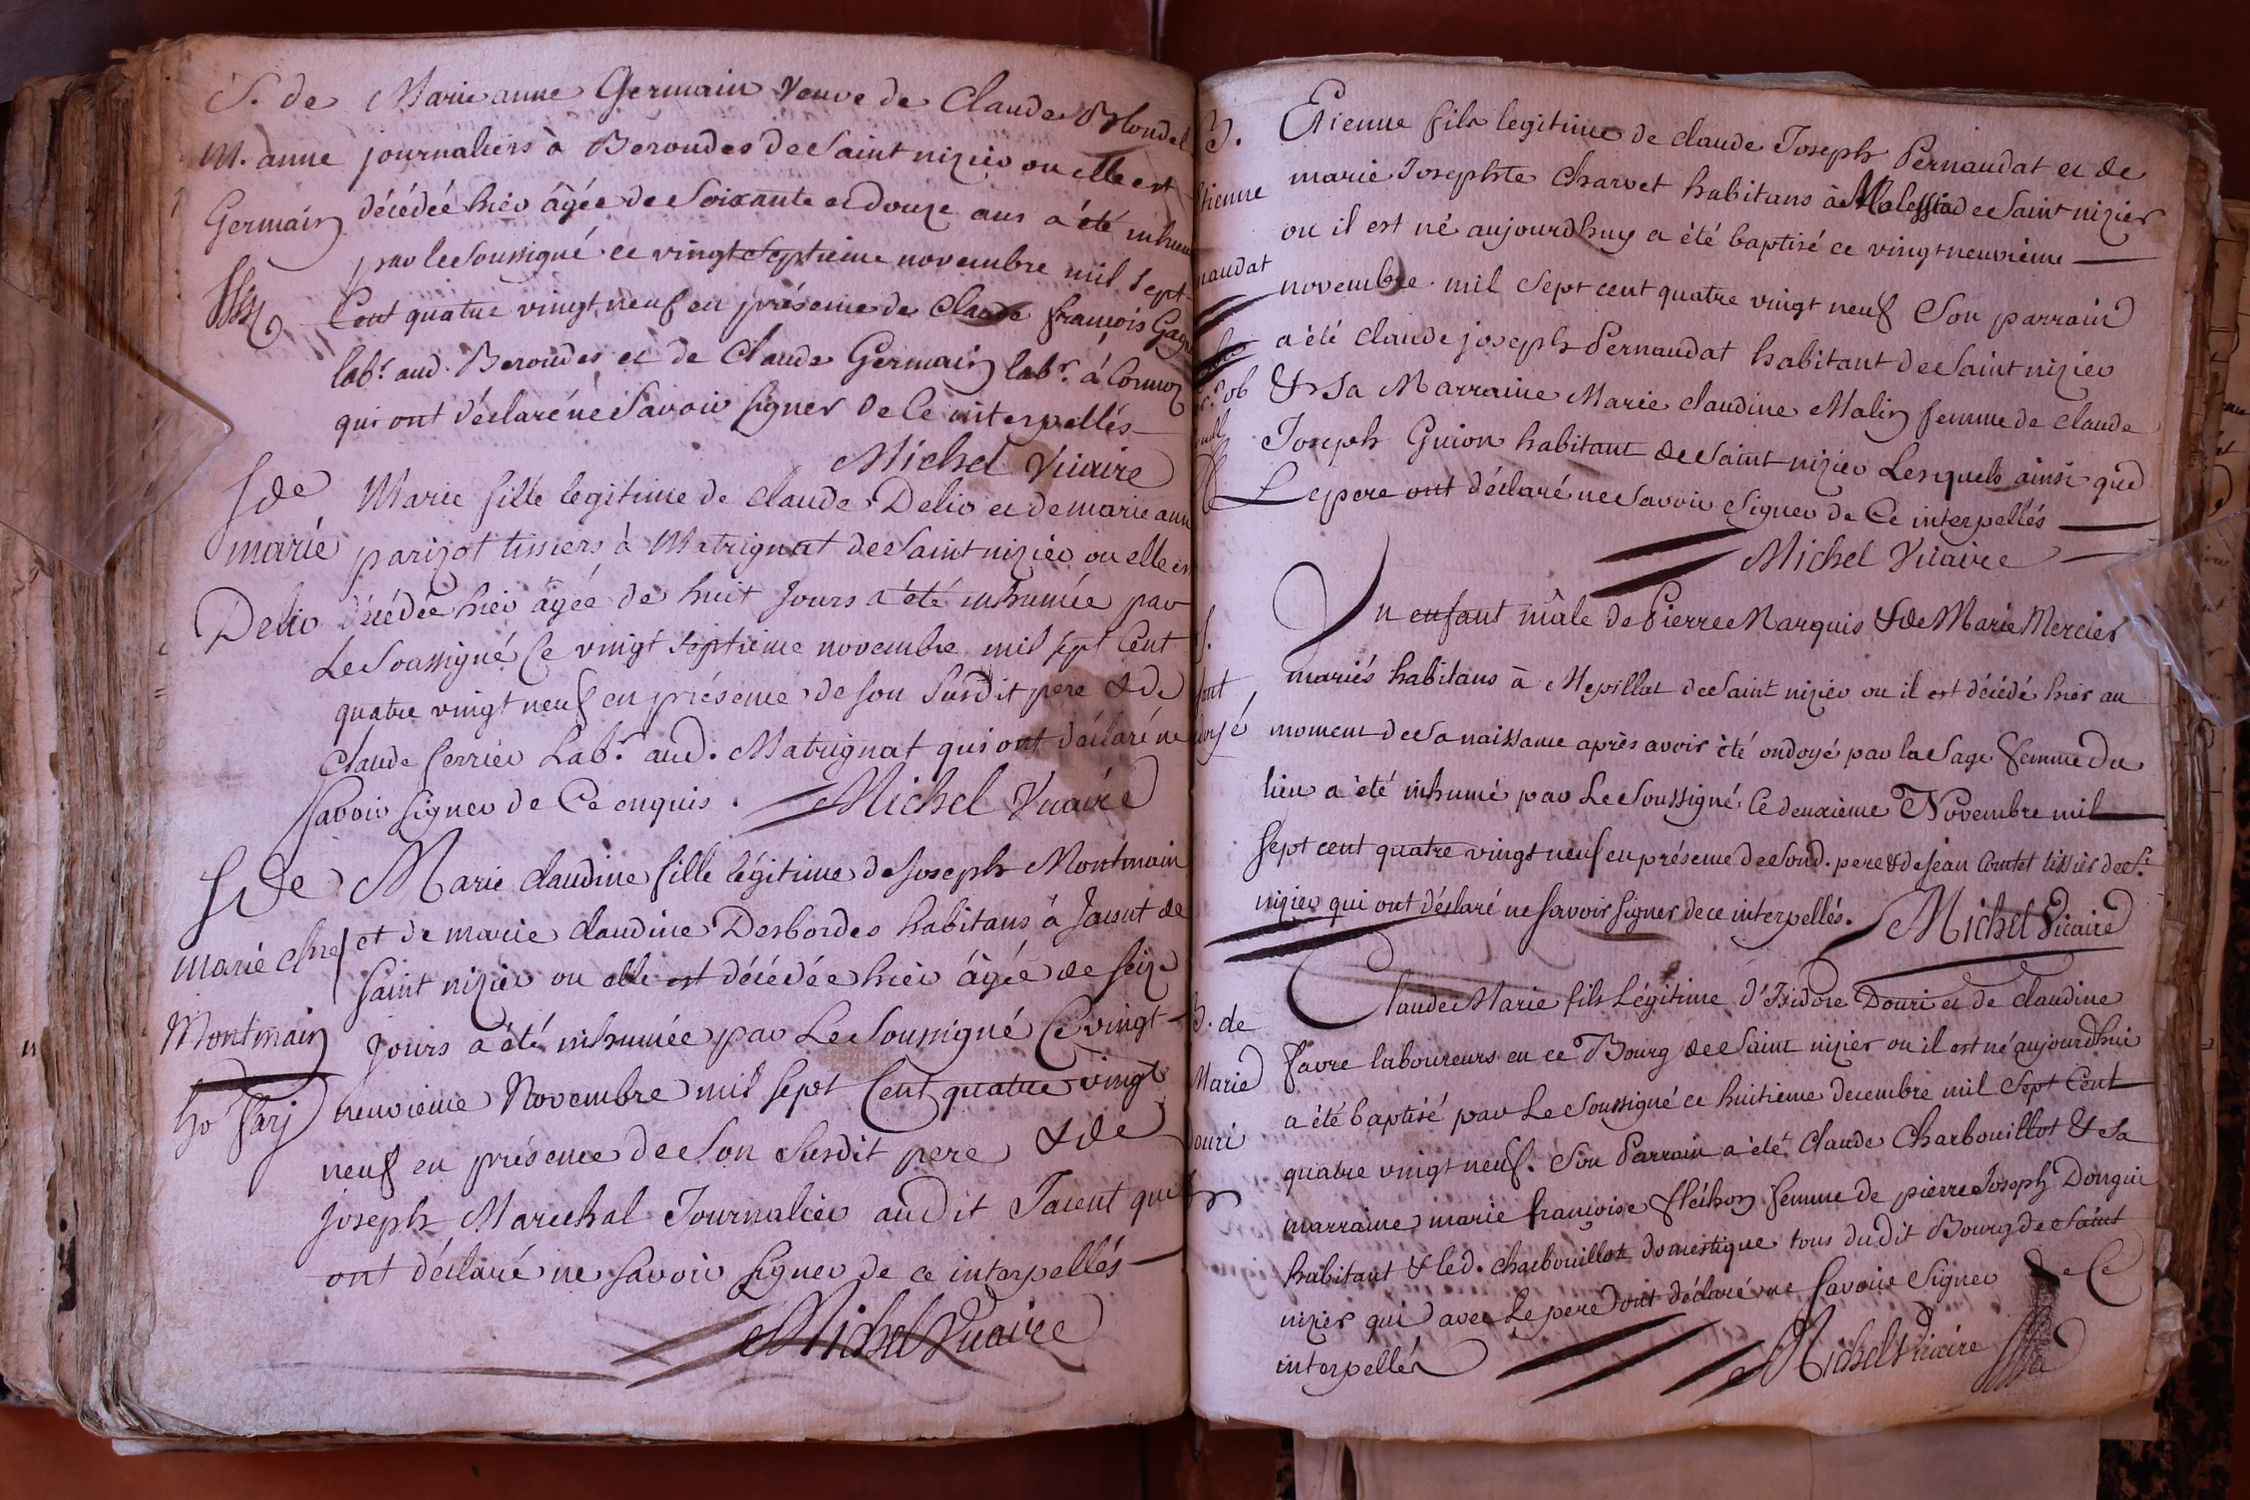 S. de
M. anne
Germain
Marie anne Germain veuve de Claude Blondel
journaliers à Beroudes de Saint nizier ou elle est
décédée hier âgée de Soixante et douze ans a été inhumée
par le Soussigné ce vingt Septieme novembre mil sept
Cent quatre vingt neuf en présence de Claude françois
labr. aud. Beroudes et de Claude Germain labr. à Cormoz
qui ont déclaré ne Savoir signer de Ce interpellés
Michel Vicaire
S de
marie
Delio
Marie fille legitime de Claude Delio et de marie anne
parizot tissiers à Matrignat de Saint nizier ou elle est
décédée hier âgée de huit Jours a été inhumée par
Le Soussigné Ce vingt septieme novembre mil sept Cent
quatre vingt neuf en présence de son Susdit pere & de
Claude ferrier Labr. aud. Matrignat qui ont déclaré ne
Savoir signer de Ce enquis. Michel Vicaire
S de
marie
Montmain
Marie Claudine fille légitime de Joseph Montmain
et de marie claudine Desbordes habitans à Jaunt de
Saint nizier ou elle est décédée hier âgée de seize
Jours a été inhumée par Le Soussigné Ce vingt
neuvieme Novembre mil sept Cent quatre vingt
neuf en présence de Son Susdit pere & de
joseph Marechal Journalier audit Jaunt qui
ont déclaré ne savoir signer de ce interpellés
Michel Vicaire
B.
Etienne
Etienne fils legitime de claude Joseph Pernaudat et de
marie Josephte Charvet habitans à Malessia de Saint nizier
ou il est né aujourdhuy a été baptisé ce vingt neuvième
novembre mil Sept cent quatre vingt neuf Son parrain
a été claude joseph Pernaudat habitant de Saint nizier
& Sa Marraine Marie claudine Malin femme de claude
Joseph Guion habitant de Saint nizier Lesquels ainsi que
Le pere ont déclaré ne Savoir Signer de Ce interpellés
Michel Vicaire
Un enfant mâle de Pierre Marquis & de Marie Mercier
mariés habitans à Mepillat de Saint nizier ou il est décédé hier au
moment de Sa naissance après avoir été ondoyé par la Sage femme du
lieu a été inhumé par Le Soussigné Ce deuxieme Novembre mil
Sept cent quatre vingt neuf en présence de Sond. pere & de jean Comtet tissier de St.
nizier qui ont déclaré ne Savoir signer de ce interpellés. Michel Vicaire
B. de
Marie
Douri
Claude Marie fils Légitime d'Isidore Douri et de claudine
favre laboureurs en ce Bourg de Saint nizier ou il est né aujourdhui
a été baptisé par Le Soussigné ce huitieme decembre mil Sept Cent
quatre vingt neuf. Son Parrain a été Claude Charbouillot & Sa
marraine marie françoise fléchon femme de pierre Joseph Donguin
habitant & led. charbouillot domestique tous dudit Bourg de Saint
nizier qui avec Le pere ont déclaré ne Savoir Signer De Ce
interpellés Michel Vicaire